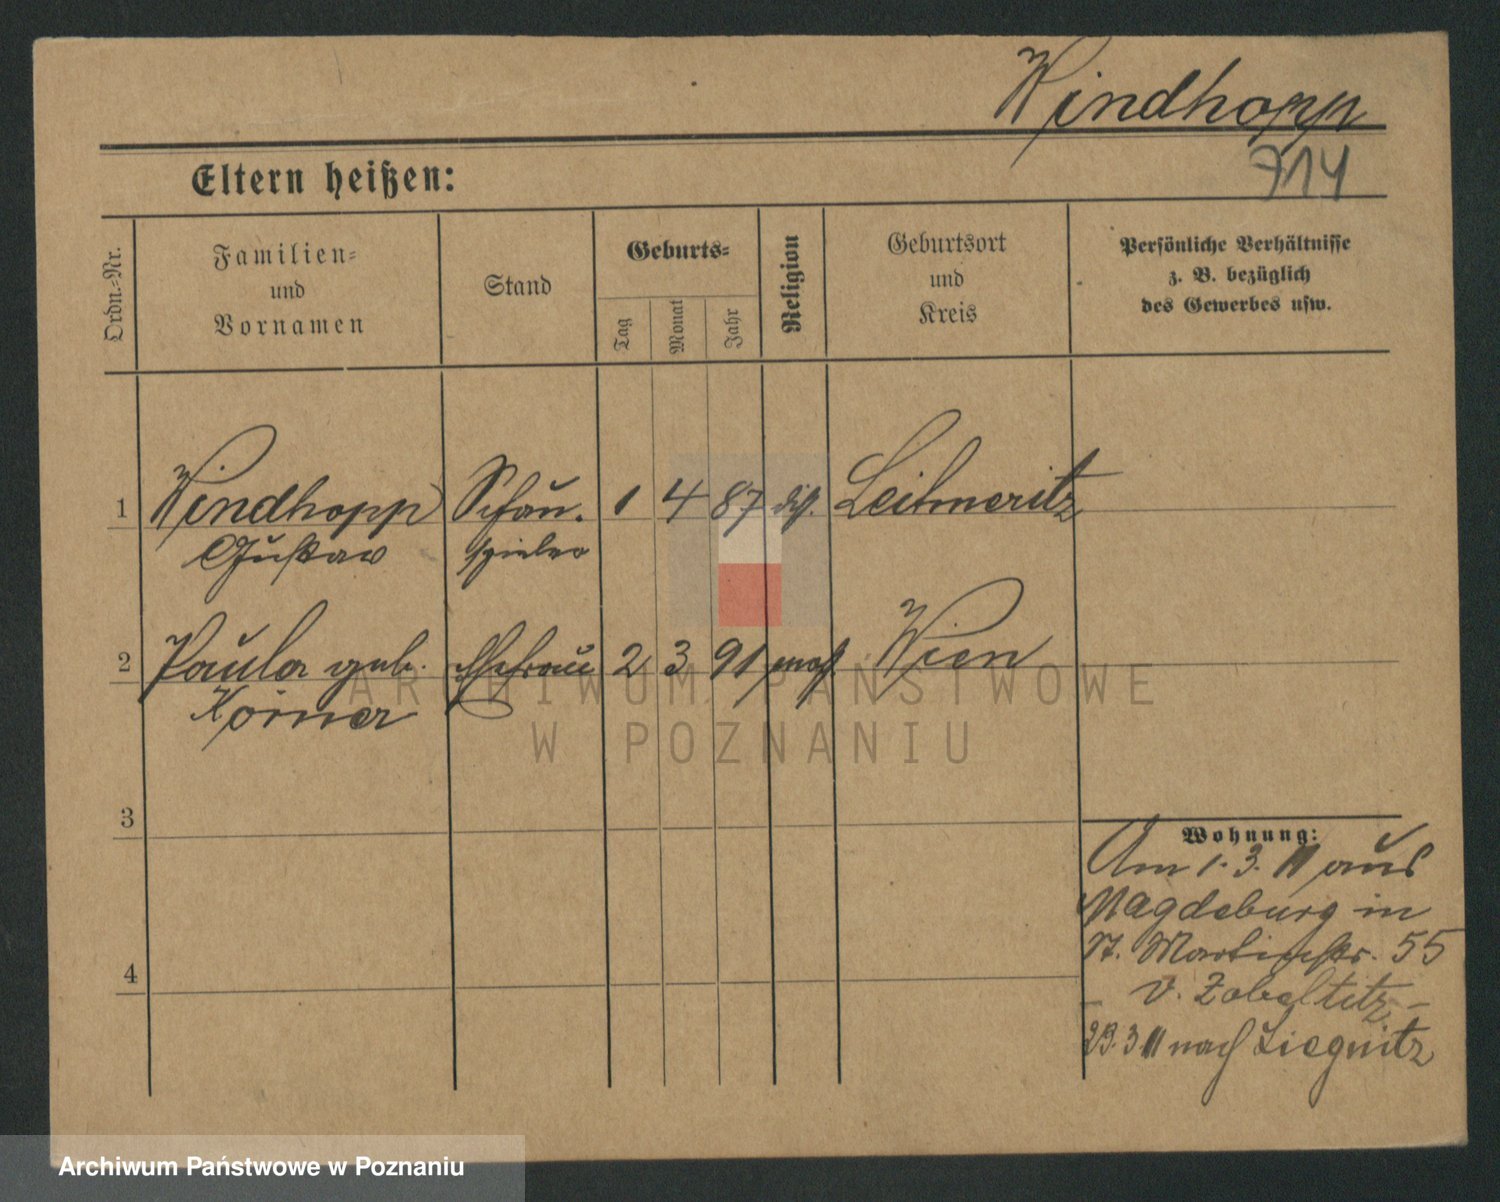 Windhopp
714
Eltern heißen:
Ordn.-Nr.
Familien-
und
Vornamen
Stand
Geburts-
Tag
Monat
Jahr
Religion
Geburtsort
und
Kreis
Persönliche Verhältnisse
z. B. bezüglich
des Gewerbes usw.
1 Windhopp Schau- 1 4 87 diss. Leitmeritz
Gustav spieler
2 Paula geb. Ehefrau 2 3 91 mos. Wien
Körner
3
4
Wohnung:
Am 1. 3. 11 aus
Magdeburg in
St. Martinstr. 55
v. Zobeltitz
3 11 nach Liegnitz
ARCHIWUM PAŃSTWOWE
W POZNANIU
Archiwum Państwowe w Poznaniu